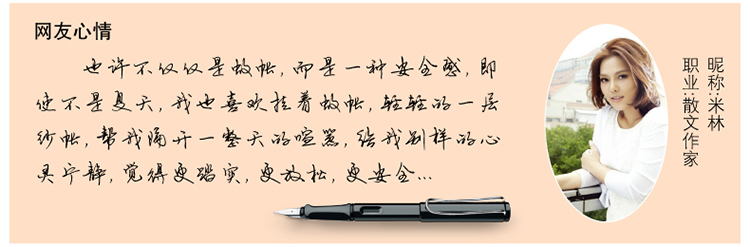 网友心情
也许不仅仅是蚊帐,而是一种安全感,即
使不是夏天,我也喜欢挂着蚊帐,轻轻的一层
纱帐,帮我隔开一整天的喧嚣,给我别样的心
灵宁静,觉得更踏实,更放松,更安全...
昵称:米林
职业:散文作家